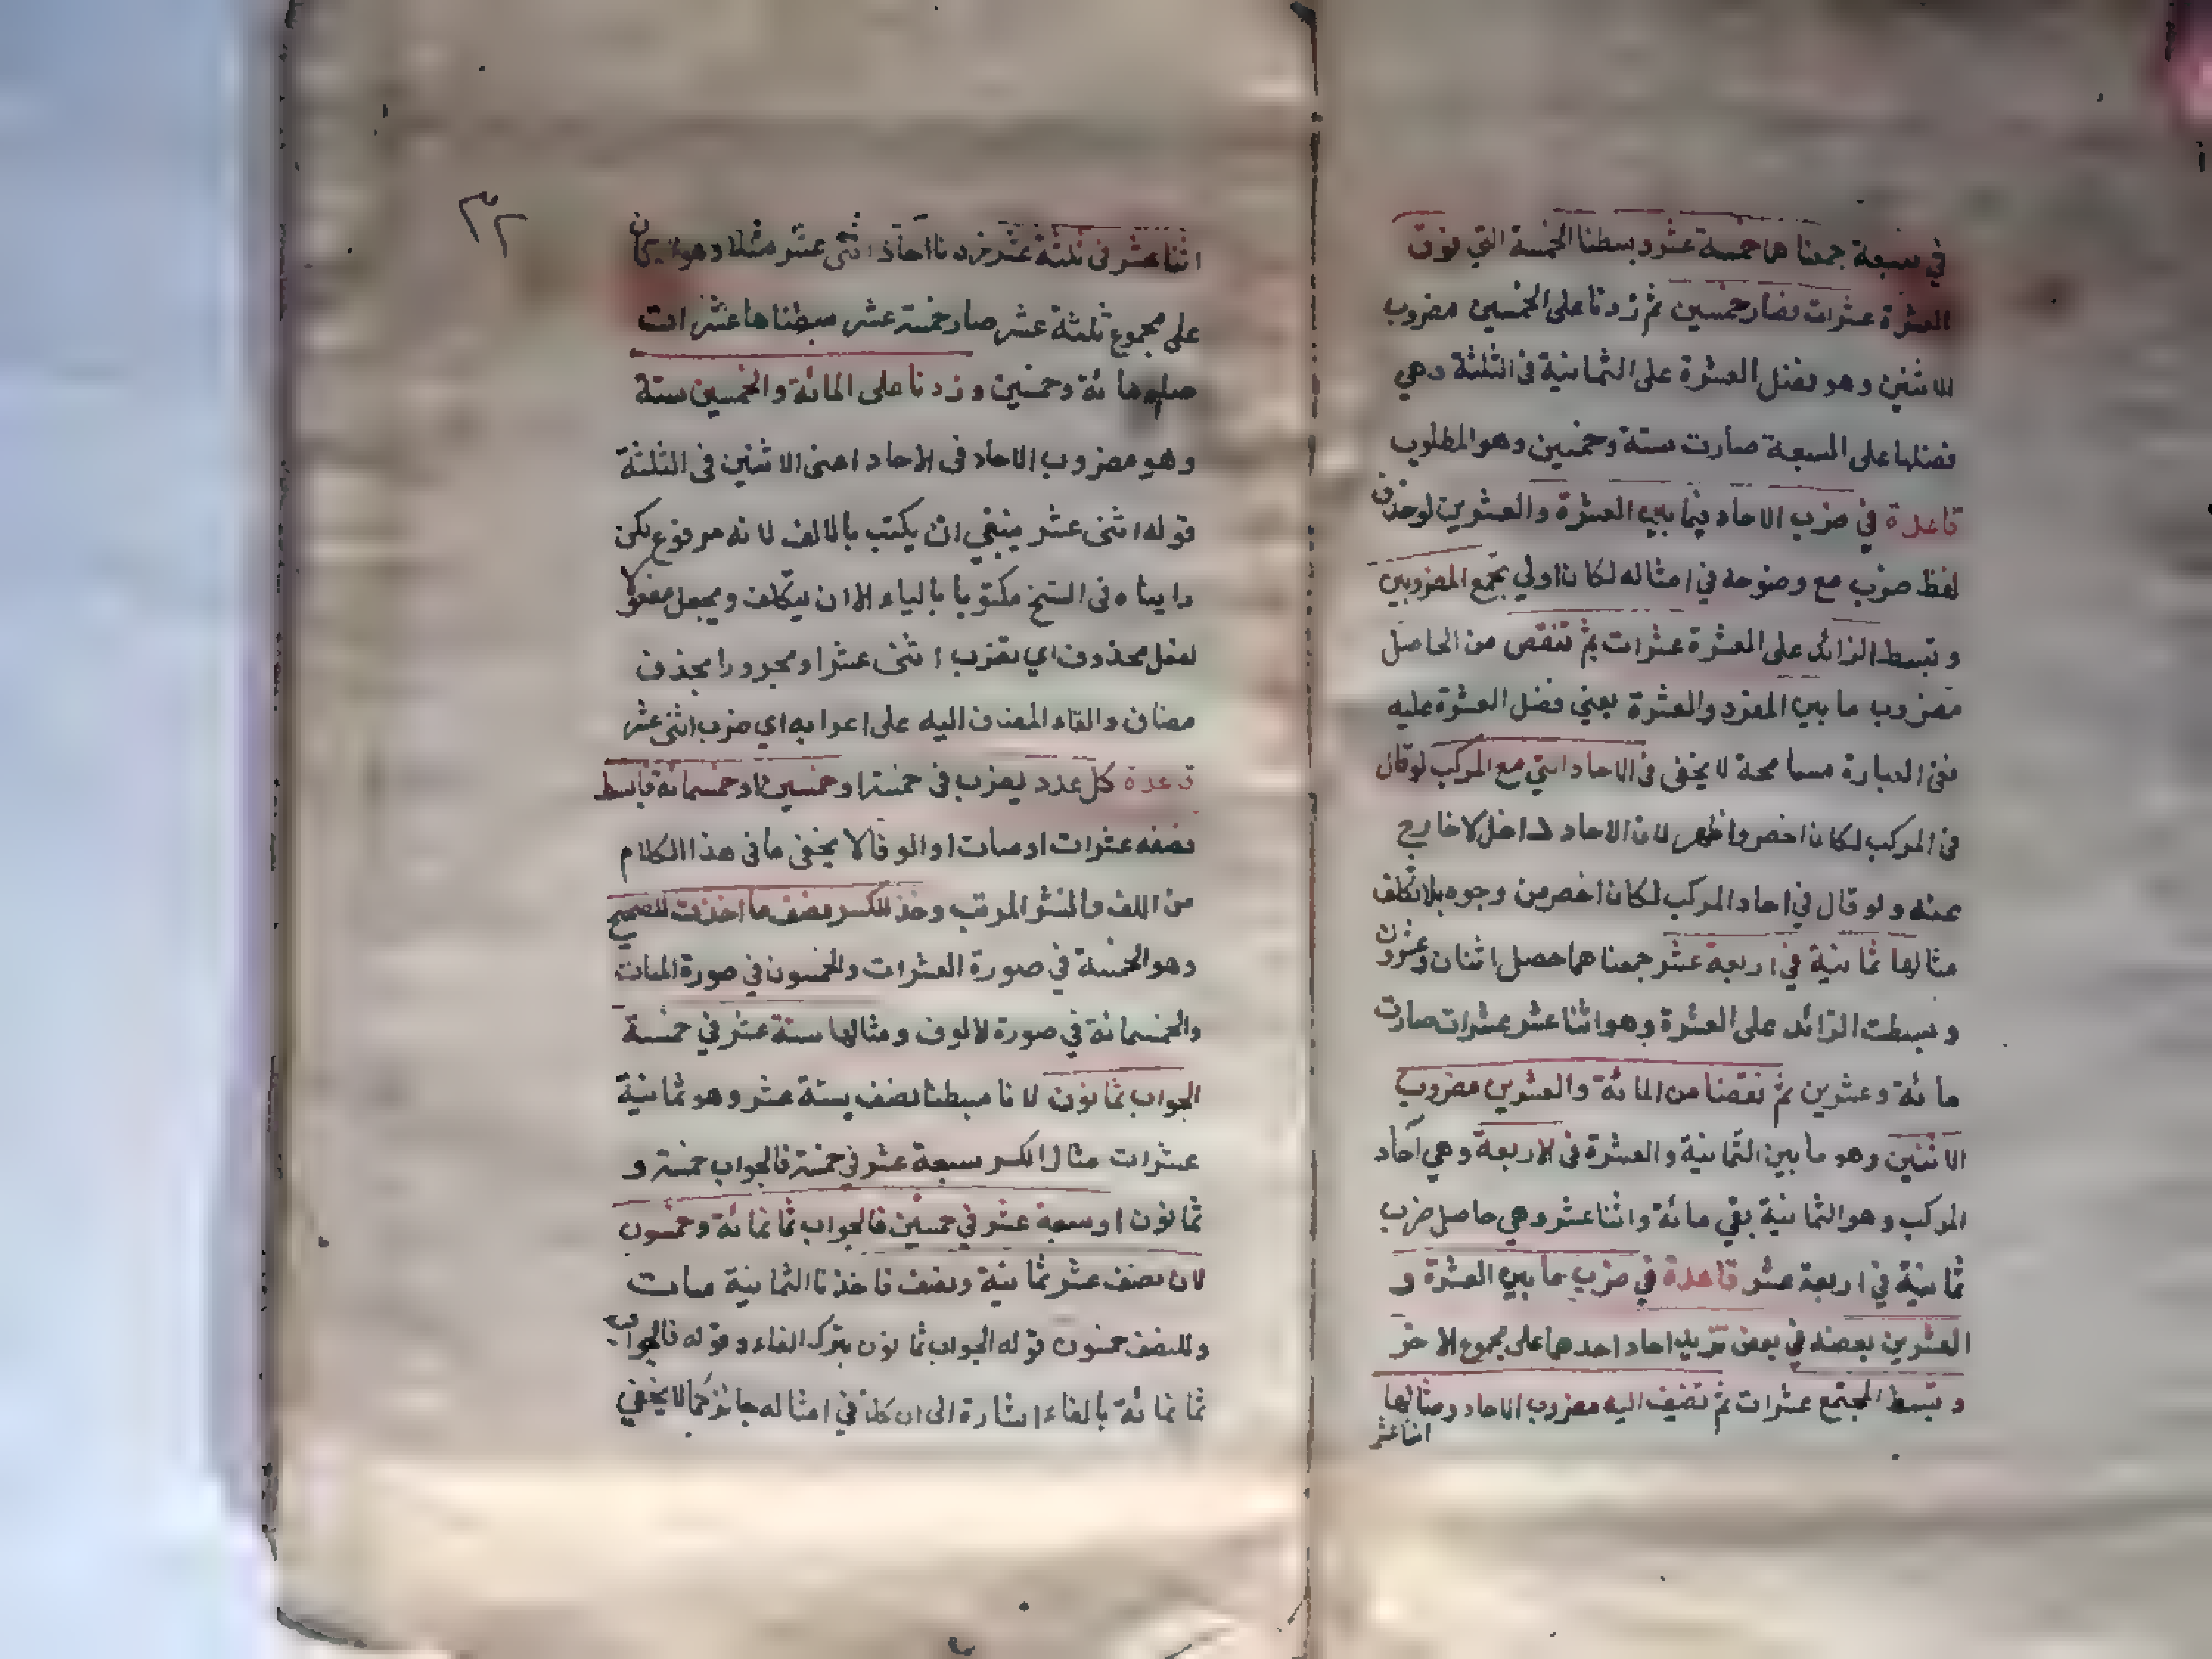 في سبعة جمعنا هما خمسة عشر وبسطنا الخمسة التي فوق
العشرة عشرات فصار خمسين ثم زدنا على الخمسين مضروب
الاثنين وهو فضل العشرة على الثمانية في الثلثة وهي
فضلها على السبعة صارت ستة وخمسين وهو المطلوب
قاعدة في ضرب الاحاد فيما بين العشرة والعشرين لو حذف
لفظ ضرب مع وضوحه في امثاله لكان اولي تجمع المضروبين
وتبسط الزائد على العشرة عشرات ثم تنقص من الحاصل
مضروب ما بين المفرد والعشرة يعني فضل العشرة عليه
ففي العبارة مسامحة لا يخفى في الاحاد التي مع المركب لو قال
في المركب لكان اخصر واظهر لان الاحاد داخل لا خارج
عنه ولو قال في احاد المركب لكان اخصر من وجوه بلا تكلف
مثالها ثمانية في اربعة عشر جمعنا هما حصل اثنان وعشرون
وبسطت الزائد على العشرة وهو اثنا عشر عشرات صارت
مائة وعشرين ثم نقصنا من المائة والعشرين مضروب
الاثنين وهو ما بين الثمانية والعشرة في الاربعة وهي آحاد
المركب وهو الثمانية بقي مائة واثنا عشر وهي حاصل ضرب
ثمانية في اربعة عشر قاعدة في ضرب ما بين العشرة و
العشرين بعضه في بعض تزيد احاد احدهما على مجموع الاخر
وتبسط المجتمع عشرات ثم تضيف اليه مضروب الاحاد ومثالها
اثنا عشر
٣٢
اثنا عشر في ثلثة عشر زدنا آحاد اثنى عشر مثلا وهو اثنان
على مجموع ثلثة عشر صار خمسة عشر بسطناها عشرات
مائة وخمسين وزدنا على المائة والخمسين ستة
وهو مضروب الاحاد في الاحاد اعنى الاثنين في الثلثة
قوله اثنى عشر ينبغي ان يكتب بالالف لانه مرفوع لكن
رايناه في النسخ مكتوبا بالياء الا ان يتكلف ويجعل مفعولا
لفعل محذوف اي نضرب اثنى عشر او مجرورا بحذف
مضاف والقاء المضاف اليه على اعرابه اي ضرب اثنى عشر
قاعدة كل عدد يضرب في خمسة او خمسين او خمسمائة فابسط
نصفه عشرات او مئات او الوفا لا يخفى ما في هذا الكلام
من اللف والنشر المرتب وخذ للكسر نصف ما اخذت للصحيح
وهو الخمسة في صورة العشرات والخمسون في صورة المئات
والخمسمائة في صورة الالوف ومثالها ستة عشر في خمسة
الجواب ثمانون لانا بسطنا نصف ستة عشر وهو ثمانية
عشرات مثال الكسر سبعة عشر في خمسة فالجواب خمسة و
ثمانون او سبعة عشر في خمسين فالجواب ثمانمائة وخمسون
لان نصف عشر ثمانية ونصف فاخذنا الثمانية مئات
وللنصف خمسون قوله الجواب ثمانون بترك الفاء وقوله فالجواب
ثمانمائة بالفاء اشارة الى ان كلا في امثاله جائز كما لا يخفي